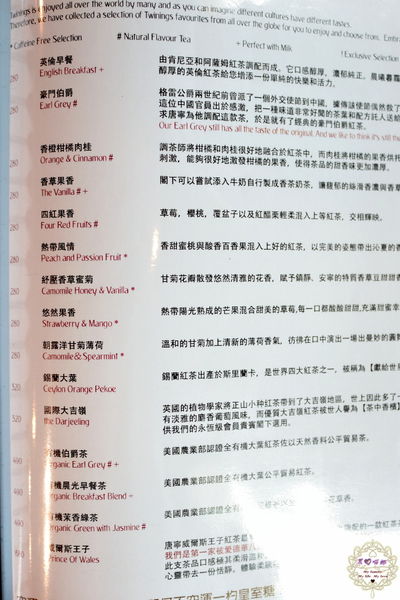 Twinings is enjoyed all over the world by many and as you can imagine different cultures have different tastes.
Therefore, we have collected a selection of Twinings favourites from all over the globe for you to enjoy and choose from.
* Caffeine Free Selection # Natural Flavour Tea + Perfect with Milk ! Exclusive Selection
280 英倫早餐 由肯尼亞和阿薩姆紅茶調配而成，它口感醇厚，濃郁純正，晨曦暮靄
English Breakfast + 醇厚的英倫紅茶給您增添一份單純的快樂和活力。
280 豪門伯爵 格雷公爵兩世紀前曾派了一個外交使節到中國，據傳該使節偶然救了
Earl Grey # 這位中國官員出於感激，把一種味道非常好聞的茶葉和配方託人送給
求唐寧為他調配這款茶，於是就有了經典的豪門伯爵紅茶。
Our Earl Grey still has all the taste of the original. And we like to think it's still the
280 香橙柑橘肉桂 調茶師將柑橘和肉桂很好地融合於紅茶中，而肉桂將柑橘的果香烘托
Orange & Cinnamon # 刺激，能夠很好地激發柑橘的果香，使得茶品的甜香味更加濃厚。
280 香草果香 閣下可以嘗試添入牛奶自行製成香茶奶茶，讓馥郁的絲滑香濃與香草
The Vanilla # +
280 四紅果香 草莓，櫻桃，覆盆子以及紅醋栗輕柔混入上等紅茶，交相輝映。
Four Red Fruits #
280 熱帶風情 香甜蜜桃與酸香百香果混入上好的紅茶，以完美的姿態帶出沁夏的香
Peach and Passion Fruit *
280 紓壓香草蜜菊 甘菊花瓣散發悠然清雅的花香，賦予鎮靜、安寧的特質香草豆甜甜
Camomile Honey & Vanilla *
280 悠然果香 熱帶陽光熟成的芒果混合甜美的草莓，每一口都酸酸甜甜，充滿甜蜜幸
Strawberry & Mango *
280 朝露洋甘菊薄荷 溫和的甘菊加上清新的薄荷香氣，彷彿在口中演出一場出曼妙的圓舞
Camomile & Spearmint *
320 錫蘭大葉 錫蘭紅茶出產於斯里蘭卡，是世界四大紅茶之一，被稱為【獻給世界
Ceylon Orange Pekoe
320 國際大吉嶺 英國的植物學家將正山小種紅茶帶到了大吉嶺地區，世上因此多了一
the Darjeeling 有淡雅的麝香葡萄風味，而優質大吉嶺紅茶被世人譽為【茶中香檳】
供我們的永恆級會員貴賓閣下選用。
有機伯爵茶 美國農業部認證全有機大葉紅茶佐以天然香料公平貿易茶。
Organic Earl Grey # +
有機晨光早餐茶 美國農業部認證全有機大葉公平貿易紅茶。
Organic Breakfast Blend +
有機茉香綠茶 美國農業部認證
Organic Green with Jasmine #
威爾斯王子 唐寧威爾斯王子紅茶最
Prince Of Wales 我們是第一家被愛德華
此支茶品口感極其柔滑
心靈帶去一份恬靜。